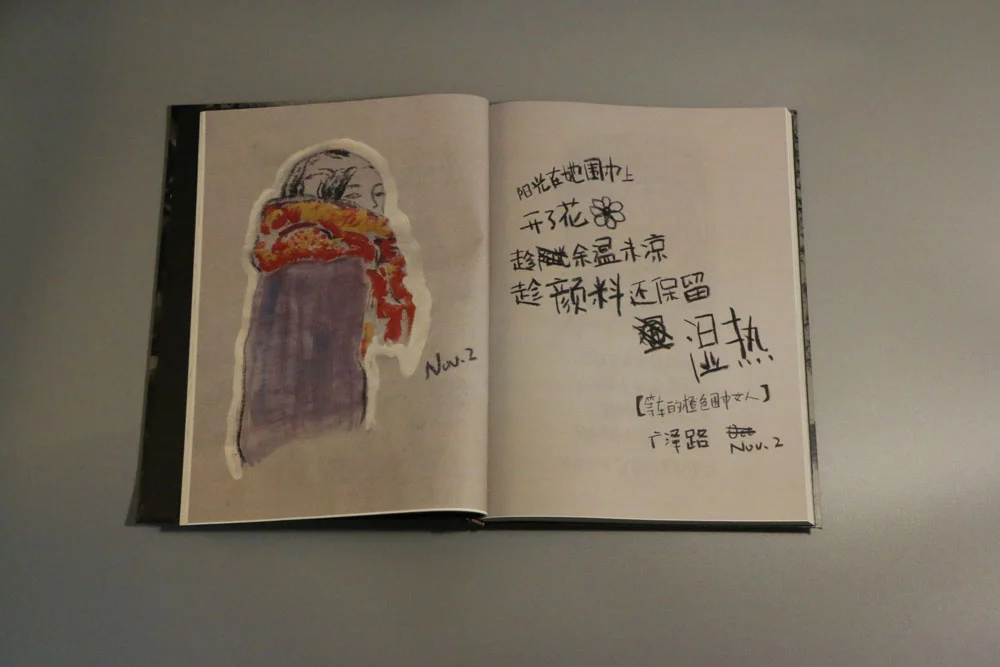 Nov.2
阳光在她围巾上
开了花
趁余温未凉
趁颜料还保留
湿热
【等车的橙色围巾女人】
广泽路
Nov.2